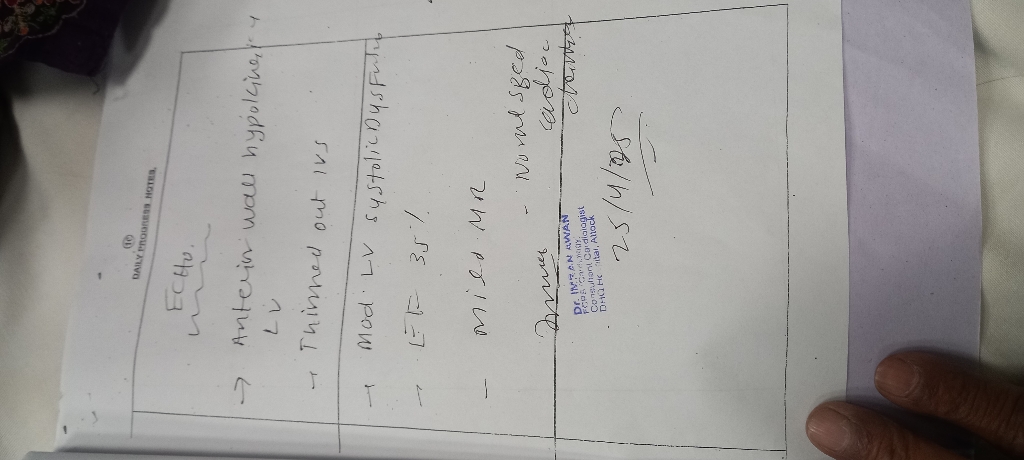 DAILY PROGRESS NOTES
ECHO.
→ Anterior wall hypokinesia
LV
→ Thinned out IVS
→ Mod. LV systolic Dysfunc
- LEF 35%
- Mild MR
- Normal sized
cardiac
chambers
Dr. IMRAN AWAN
Consultant Cardiologist
Attock
25/4/25